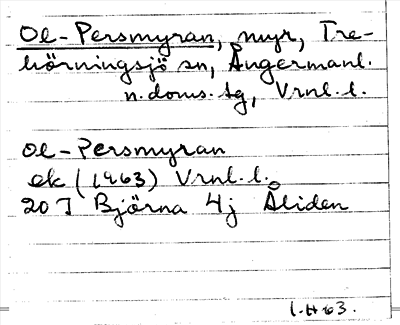 Ol-Persmyran, myr, Tre-
hörningsjö sn, Ångermanl.
n. doms. tg, Vrnl. l.
Ol-Persmyran
ek (1963) Vrnl. l.
20 J Björna 4j Åliden